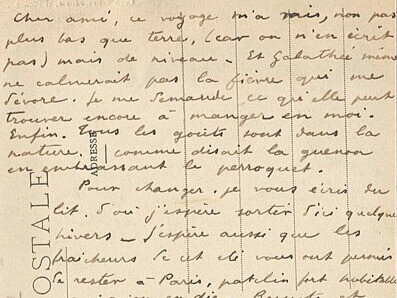 Cher ami, ce voyage m'a mis, non pas
plus bas que terre, (car on n'en écrit
pas) mais de niveau. Et Galathée même
ne calmerait pas la fièvre qui me
dévore. Je me demande ce qu'elle peut
trouver encore à manger en moi.
Enfin. Tous les goûts sont dans la
nature, comme disait la guenon
en embrassant le perroquet.
Pour changer, je vous écris du
lit. D'où j'espère sortir d'ici quelques
hivers _ J'espère aussi que les
fraîcheurs de cet été vous ont permis
de rester à Paris, patelin fort habitable
ADRESSE
OSTALE